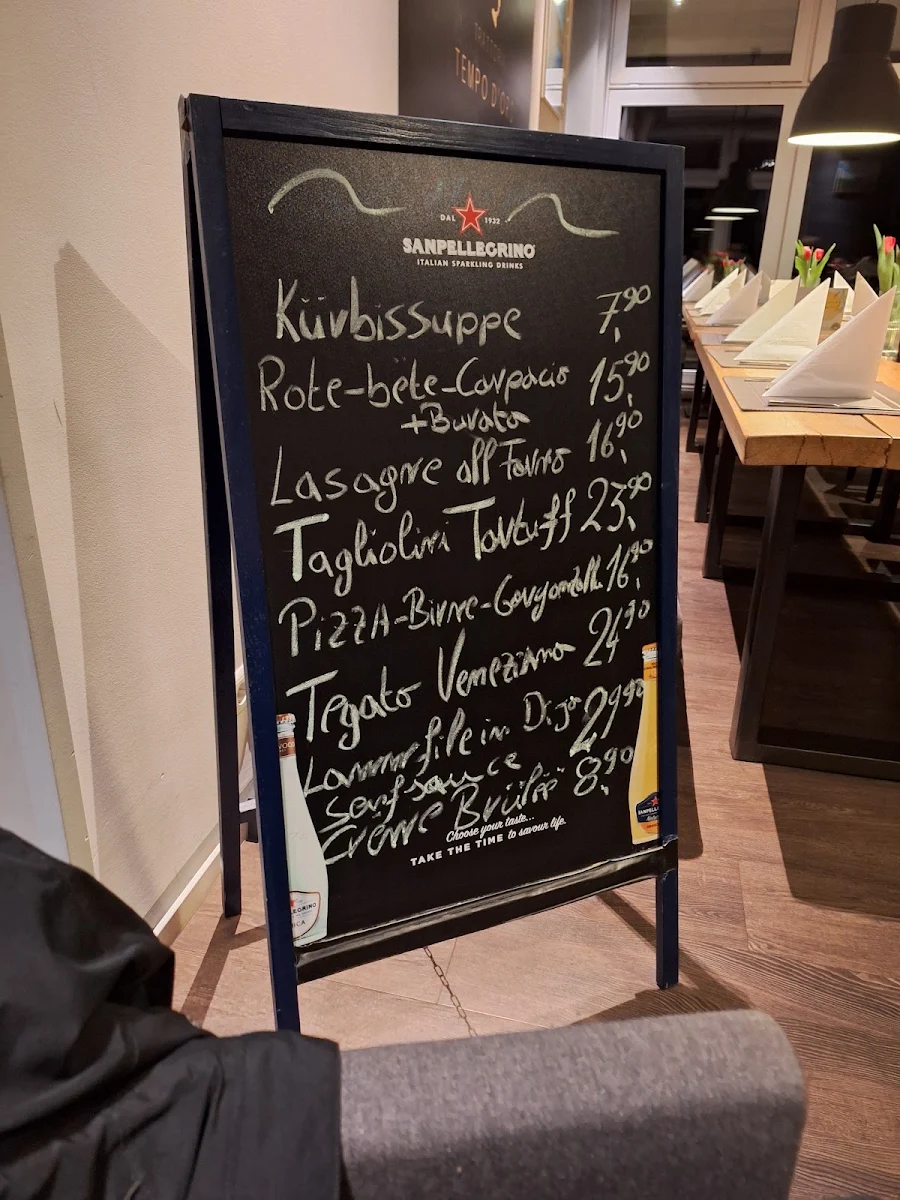 TEMPO D'O
DAL 1932
SANPELLEGRINO
ITALIAN SPARKLING DRINKS
Kürbissuppe 7,90
Rote-bete-Carpacio 15,90
+Burata
Lasagne all Forno 16,90
Tagliolini Tartuff 23,90
PIZZA-Birne-Gorgonzolla 16,90
Tegato Veneziana 24,90
Lammfile in Dijo 29,90
senfsauce
Crème Brülèe 8,90
Choose your taste...
TAKE THE TIME to savour life.